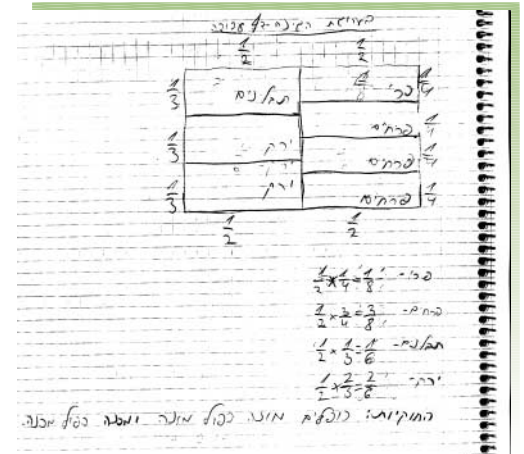 ערוגת הגינה - דף עבודה
1/2 1/2
1/3 תבלינים פרי 1/8 1/4
פרחים 1/4
1/3 ירק פרחים 1/4
1/3 ירק פרחים 1/4
1/2 1/2
פרי - 1/2 × 1/4 = 1/8
פרחים - 1/2 × 3/4 = 3/8
תבלינים - 1/2 × 1/3 = 1/6
ירק - 1/2 × 2/3 = 2/6
החוקיות: כופלים מונה כפול מונה ומכנה כפול מכנה.